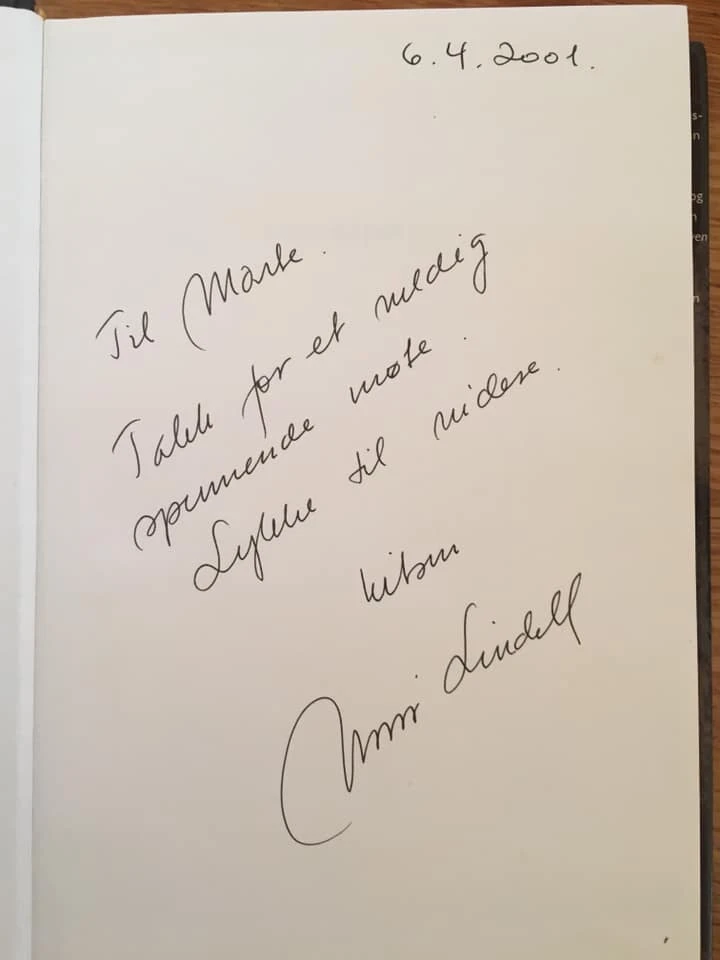 6.4.2001.
Til Marte.
Takk for et veldig
spennende møte.
Lykke til videre.
hilsen
Unni Lindell
s-
n
og
n
en
n